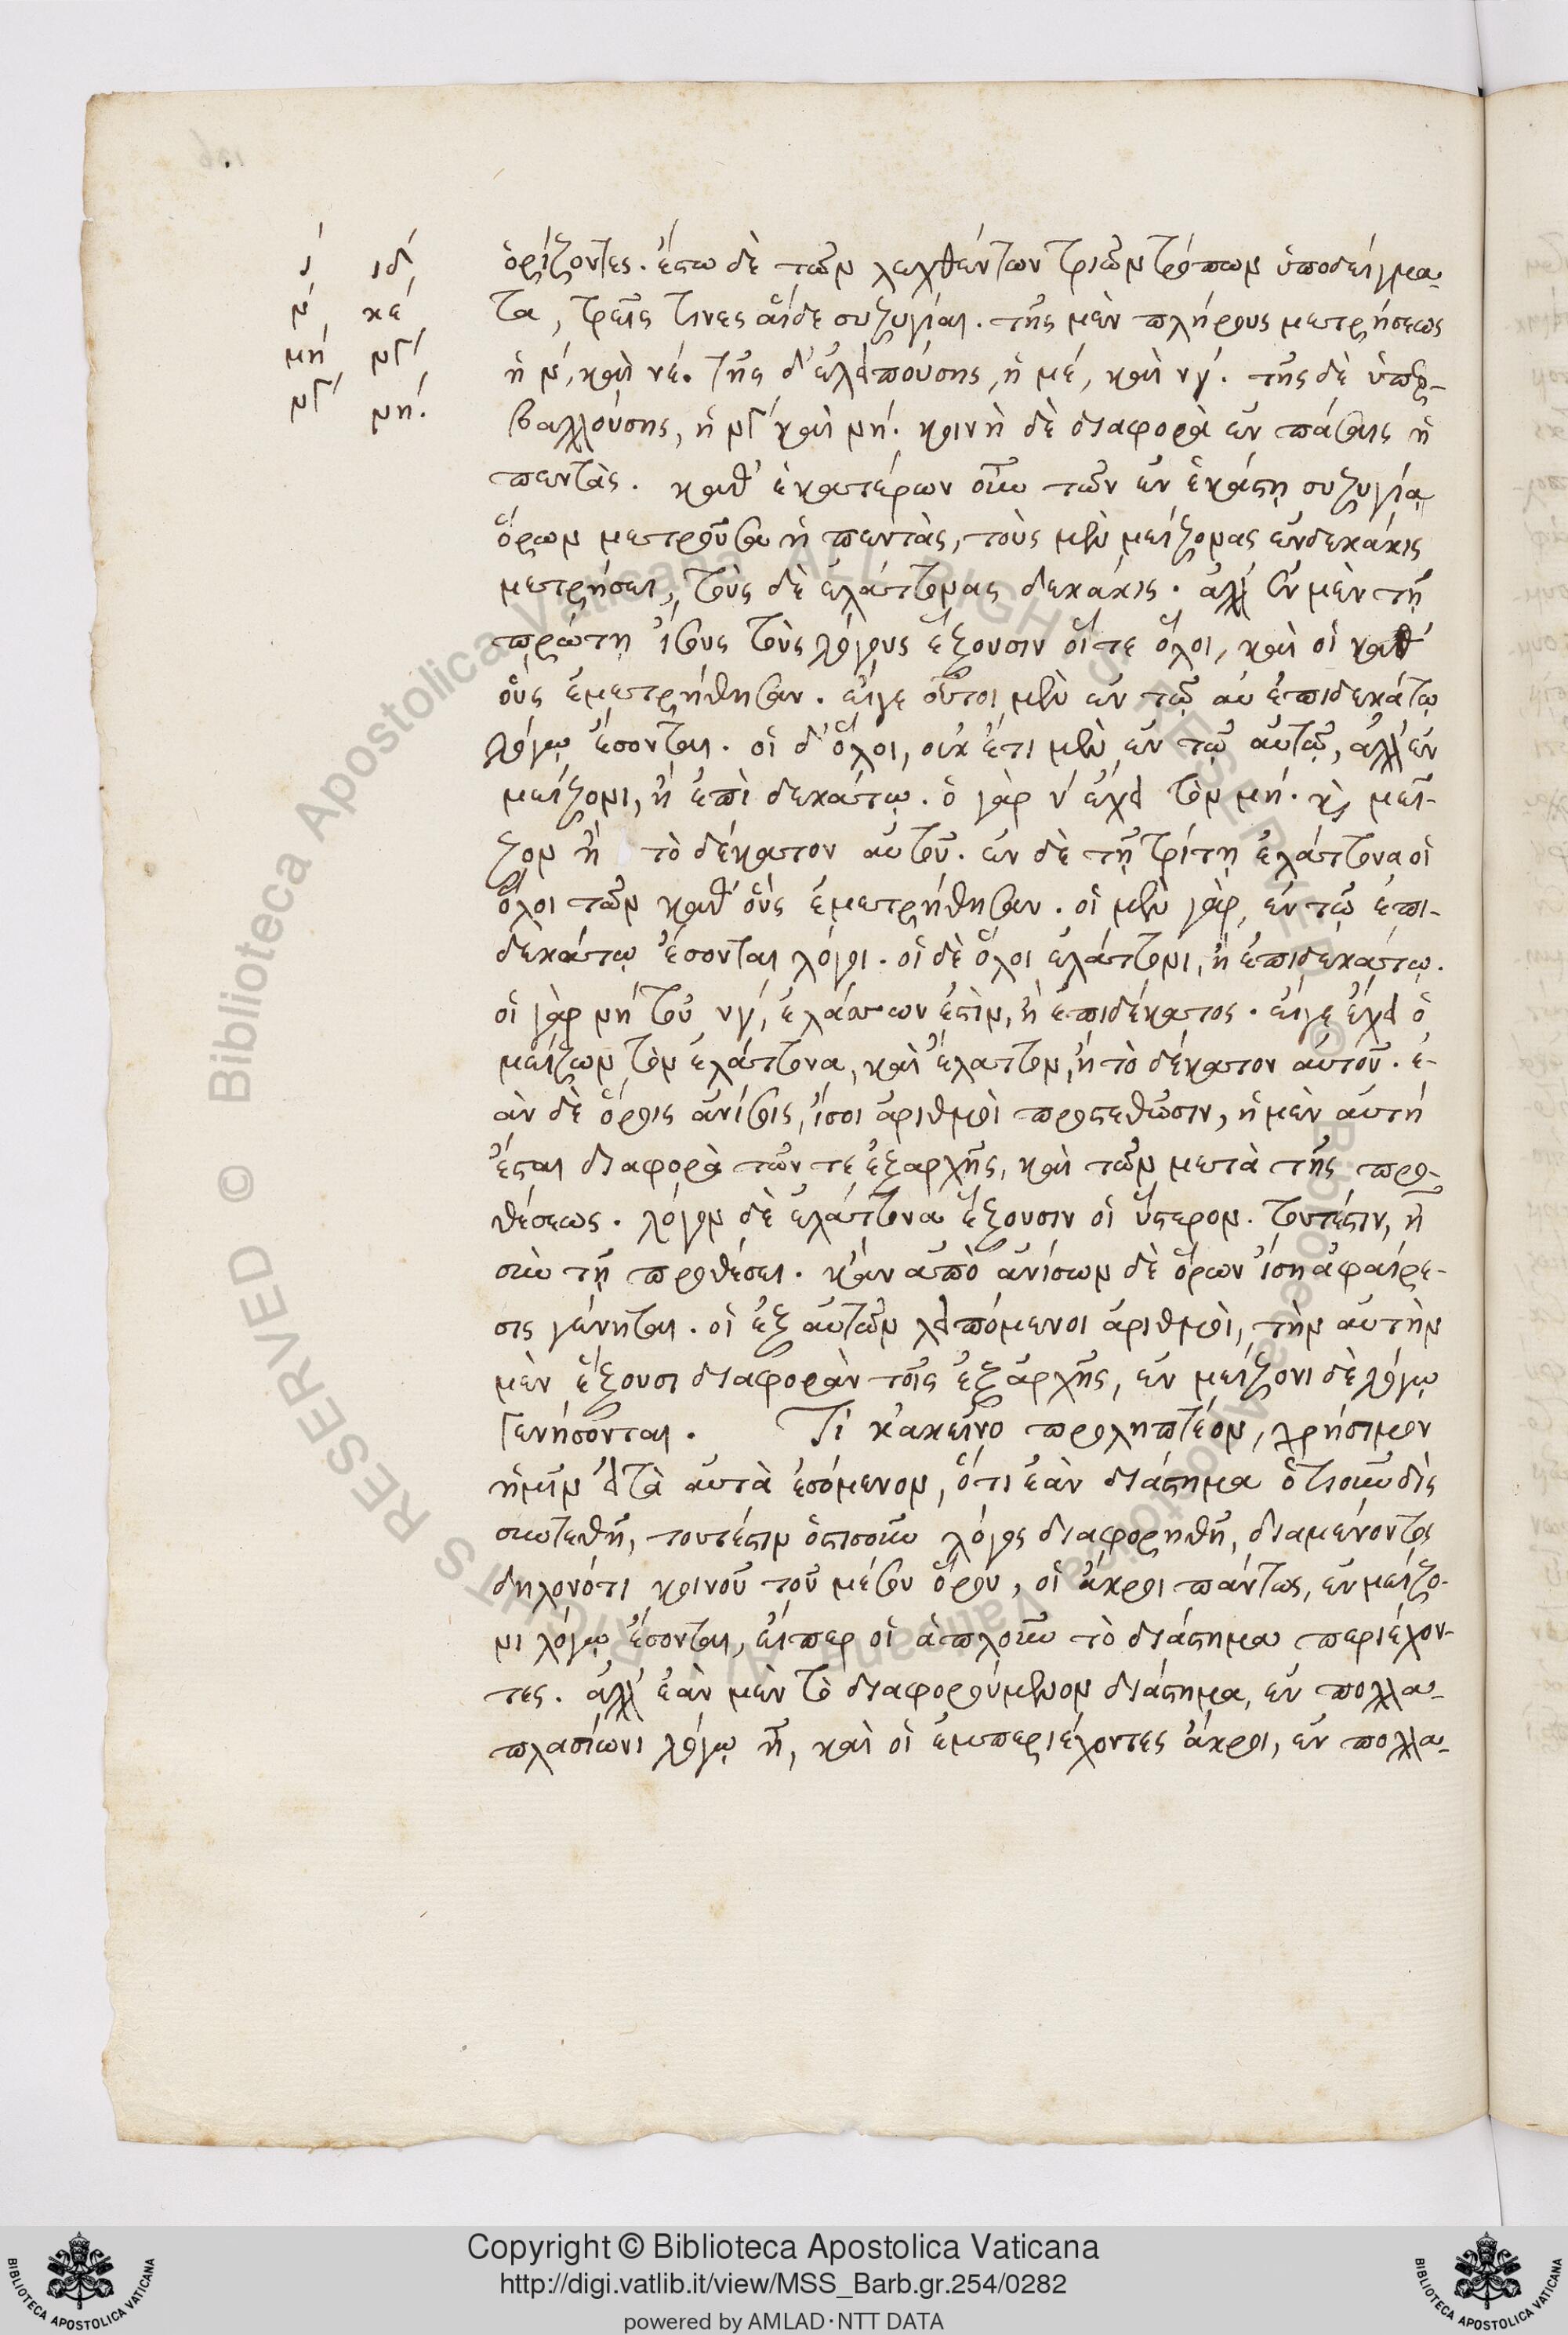 ί ιδ́
ν́ κέ
μή νγ́
νγ́ νή.
ὁρίζοντες. ἔστω δὲ τῶν λεχθέντων τριῶν τρόπων ὑποδείγμα-
τα, τρεῖς τινες αἵδε συζυγίαι. τῆς μὲν πλήρους μετρήσεως
ἡ ν́, καὶ νέ. τῆς δ' ἐλειπούσης, ἡ μέ, καὶ νγ́. τῆς δὲ ὑπερ-
βαλλούσης, ἡ νγ́ καὶ νή. κοινὴ δὲ διαφορὰ ἐν πάσαις ἡ
πεντὰς. καθ' ἑκατέρων οὖν τῶν ἐν ἑκάστῃ συζυγίᾳ
ὅρων μετροῦσα ἡ πεντὰς, τοὺς μὲν μείζονας ἑνδεκάκις
μετρήσει, τοὺς δὲ ἐλάττονας δεκάκις. ἀλλ' ἐν μὲν τῇ
πρώτῃ ἴσους τοὺς λόγους ἕξουσιν οἵ τε ὅλοι, καὶ οἱ καθ'
οὓς ἐμετρήθησαν. εἴγε οὗτοι μὲν ἐν τῷ αὐ ἐπιδεκάτῳ
λόγῳ ἔσονται. οἱ δ' ὅλοι, οὐκ έτι μὲν ἐν τῷ αὐτῷ, ἀλλ' ἐν
μείζονι, ἢ ἐπὶ δεκάτῳ. ὁ γὰρ ν' ἔχει τὸν μή. κ̀ μεῖ-
ζον ἢ τὸ δέκατον αὐτοῦ. ἐν δὲ τῇ τρίτῃ ἐλάττονα οἱ
ὅλοι τῶν καθ' οὓς ἐμετρήθησαν. οἱ μὲν γὰρ, ἐν τῷ ἐπι-
δεκάτῳ ἔσονται λόγοι. οἱ δὲ ὅλοι ἐλάττονι, ἢ ἐπιδεκάτῳ.
οἱ γὰρ νή τοῦ νγ́, ἐλάσσων ἐστὶν, ἢ ἐπιδέκατος. εἴγε ἔχει ὁ
μείζων τὸν ἐλάττονα, καὶ ἔλαττον, ἢ τὸ δέκατον αὐτοῦ. ἐ-
ὰν δὲ ὅροις ἀνίσοις, ἴσοι ἀριθμοὶ προστεθῶσιν, ἡ μὲν αὐτή
ἔσται διαφορὰ τῶν τε ἐξαρχῆς, καὶ τῶν μετὰ τῆς προ-
θέσεως. λόγον δὲ ἐλάττονα ἕξουσιν οἱ ὕστερον. τουτέστιν, ἢ
σὺν τῇ προθέσει. κἂν ἀπὸ ἀνίσων δὲ ὅρων ἴση ἀφαίρε-
σις γένηται. οἱ ἐξ αὐτῶν λειπόμενοι ἀριθμοὶ, τὴν αὐτὴν
μὲν ἕξουσι διαφορὰν τοῖς ἐξ ἀρχῆς, ἐν μείζονι δὲ λόγῳ
γενήσονται. Τί κἀκεῖνο προληπτέον, χρήσιμον
ἡμῖν εἰ τὰ αὐτὰ ἐσόμενον, ὅτι ἐὰν διάστημα ὁτιοῦν δὶς
συντεθῇ, τουτέστιν ὁστισοῦν λόγος διαφορηθῇ, διαμένοντος
δηλονότι κοινοῦ τοῦ μέσου ὅρου, οἱ ἄκροι πάντως, ἐν μείζο-
νι λόγῳ ἔσονται, εἴπερ οἱ ἁπλοῦν τὸ διάστημα περιέχον-
τες. ἀλλ' ἐὰν μὲν τὸ διαφορούμενον διάστημα, ἐν πολλα-
πλασίωνι λόγῳ ἢ, καὶ οἱ ἐμπεριέχοντες ἄκροι, ἐν πολλα-
Copyright © Biblioteca Apostolica Vaticana
http://digi.vatlib.it/view/MSS_Barb.gr.254/0282
powered by AMLAD·NTT DATA